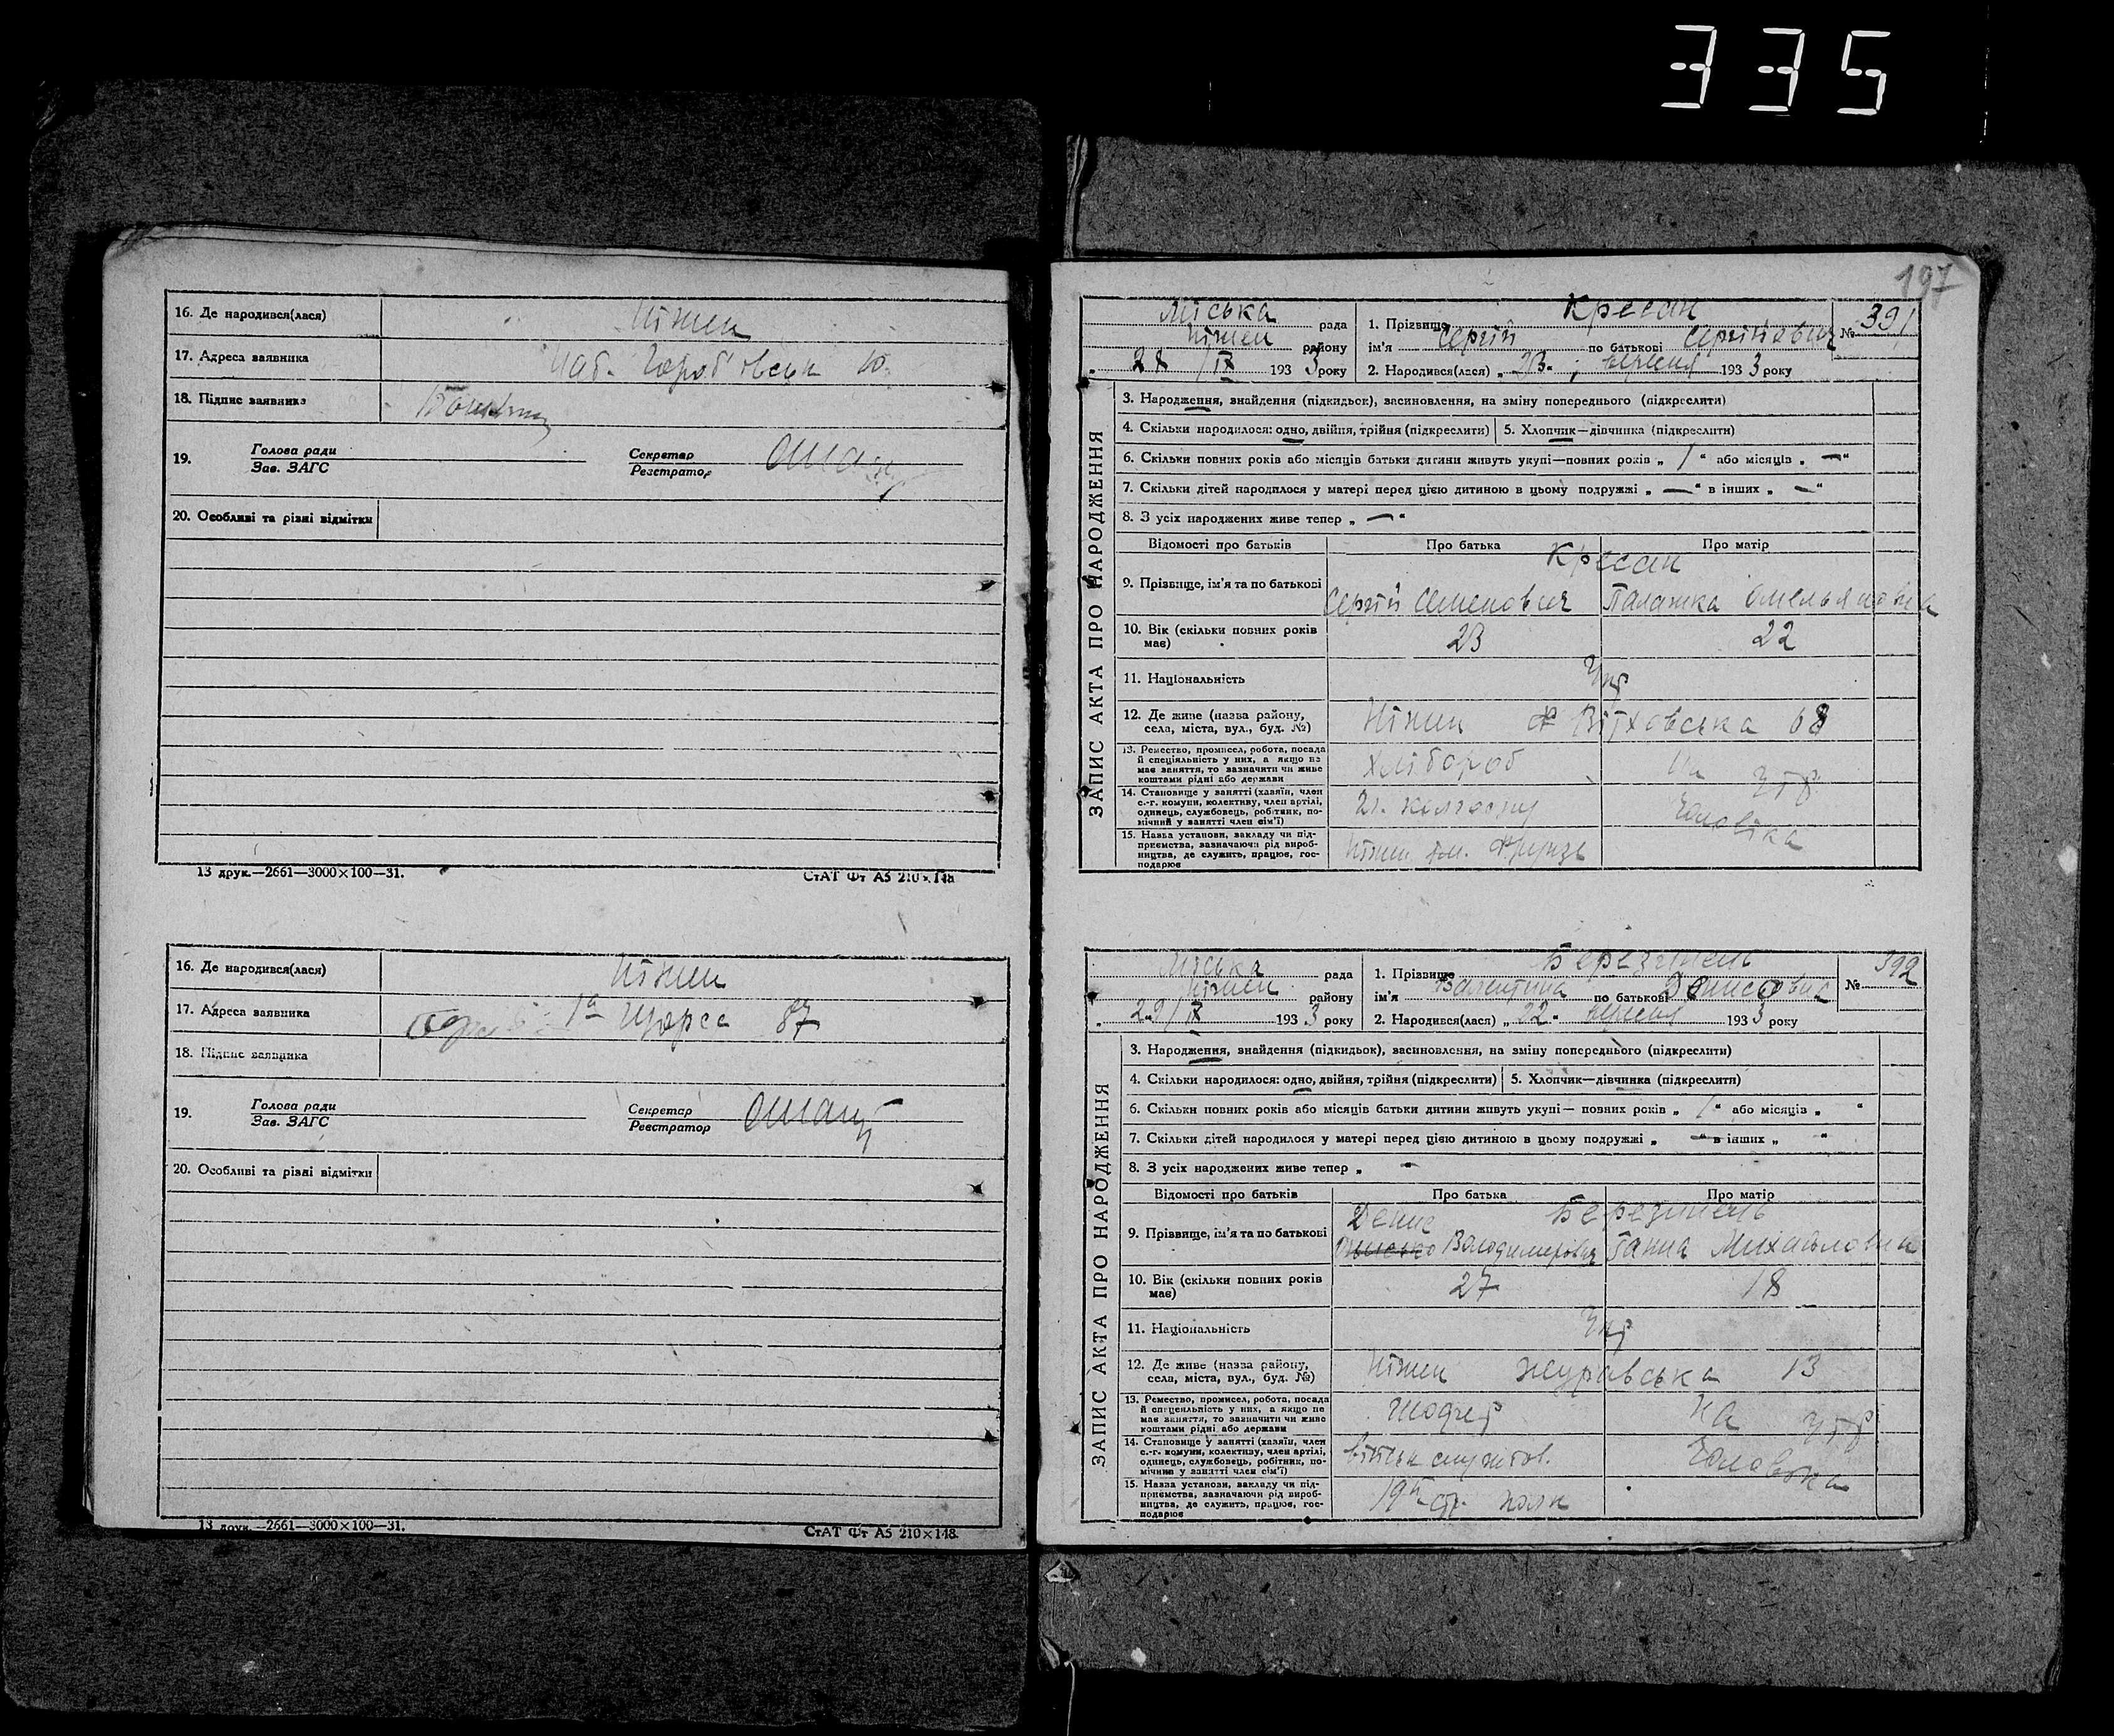 335
16. Де народився(лася) Ніжен
17. Адреса заявника
18. Підпис заявника
19. Голова ради
Зав. ЗАГС
Секретар
Реєстратор
20. Особливі та різні відмітки
13 друк.—2661—3000×100—31. СтАТ Фт А5 210×148
16. Де народився(лася) Ніжен
17. Адреса заявника 1а Щорса 87
18. Підпис заявника
19. Голова ради
Зав. ЗАГС
Секретар
Реєстратор
20. Особливі та різні відмітки
13 друк.—2661—3000×100—31. СтАТ Фт А5 210×148.
197
ЗАПИС АКТА ПРО НАРОДЖЕННЯ
Міська рада
Ніжен району
„ 28 /IX 1933 року
1. Прізвище Кресан
ім'я Сергій по батькові Сергійович
№ 391
2. Народився(лася) „ 23 вересня 1933 року
3. Народження, знайдення (підкидьок), засиновлення, на зміну попереднього (підкреслити)
4. Скільки народилося: одно, двійня, трійня (підкреслити) 5. Хлопчик—дівчинка (підкреслити)
6. Скільки повних років або місяців батьки дитини живуть укупі—повних років „ 1 “ або місяців „ — “
7. Скільки дітей народилося у матері перед цією дитиною в цьому подружжі „ — “ в інших „ — “
8. З усіх народжених живе тепер „ — “
Відомості про батьків Про батька Про матір
Кресан
9. Прізвище, ім'я та по батькові Сергій Семенович Палажка Омельяновна
10. Вік (скільки повних років має) 23 22
11. Національність Укр
12. Де живе (назва району,
села, міста, вул., буд. №) Ніжен 68
13. Ремество, промисел, робота, посада
й спеціяльність у них, а якщо не
має заняття, то зазначити чи живе
коштами рідні або держави Хлібороб На утр
14. Становище у занятті (хазяїн, член
с.-г. комуни, колективу, член артілі,
одинець, службовець, робітник, по-
мічний у занятті член сім'ї) Чл. колгоспу Чоловіка
15. Назва установи, закладу чи під-
приємства, зазначаючи рід вироб-
ництва, де служить, працює, гос-
подарює Ніжен ім. Фрунзе
ЗАПИС АКТА ПРО НАРОДЖЕННЯ
Міська рада
Ніжен району
„ 29/IX 1933 року
1. Прізвище Березинець
ім'я Валентина по батькові Денисовна
№ 392
2. Народився(лася) „ 22 вересня 1933 року
3. Народження, знайдення (підкидьок), засиновлення, на зміну попереднього (підкреслити)
4. Скільки народилося: одно, двійня, трійня (підкреслити) 5. Хлопчик—дівчинка (підкреслити)
6. Скільки повних років або місяців батьки дитини живуть укупі— повних років „ 1 “ або місяців „ “
7. Скільки дітей народилося у матері перед цією дитиною в цьому подружжі „ — “ в інших „ “
8. З усіх народжених живе тепер „ - “
Відомості про батьків Про батька Про матір
Денис Березинець
9. Прізвище, ім'я та по батькові Володимирович Ганна Михайловна
10. Вік (скільки повних років має) 27 18
11. Національність Укр
12. Де живе (назва району,
села, міста, вул., буд. №) Ніжен Журавська 13
13. Ремество, промисел, робота, посада
й спеціяльність у них, а якщо не
має заняття, то зазначити чи живе
коштами рідні або держави Шофер На утр
14. Становище у занятті (хазяїн, член
с.-г. комуни, колективу, член артілі,
одинець, службовець, робітник, по-
мічний у занятті член сім'ї) Чоловіка
15. Назва установи, закладу чи під-
приємства, зазначаючи рід вироб-
ництва, де служить, працює, гос-
подарює 19й стр. полк